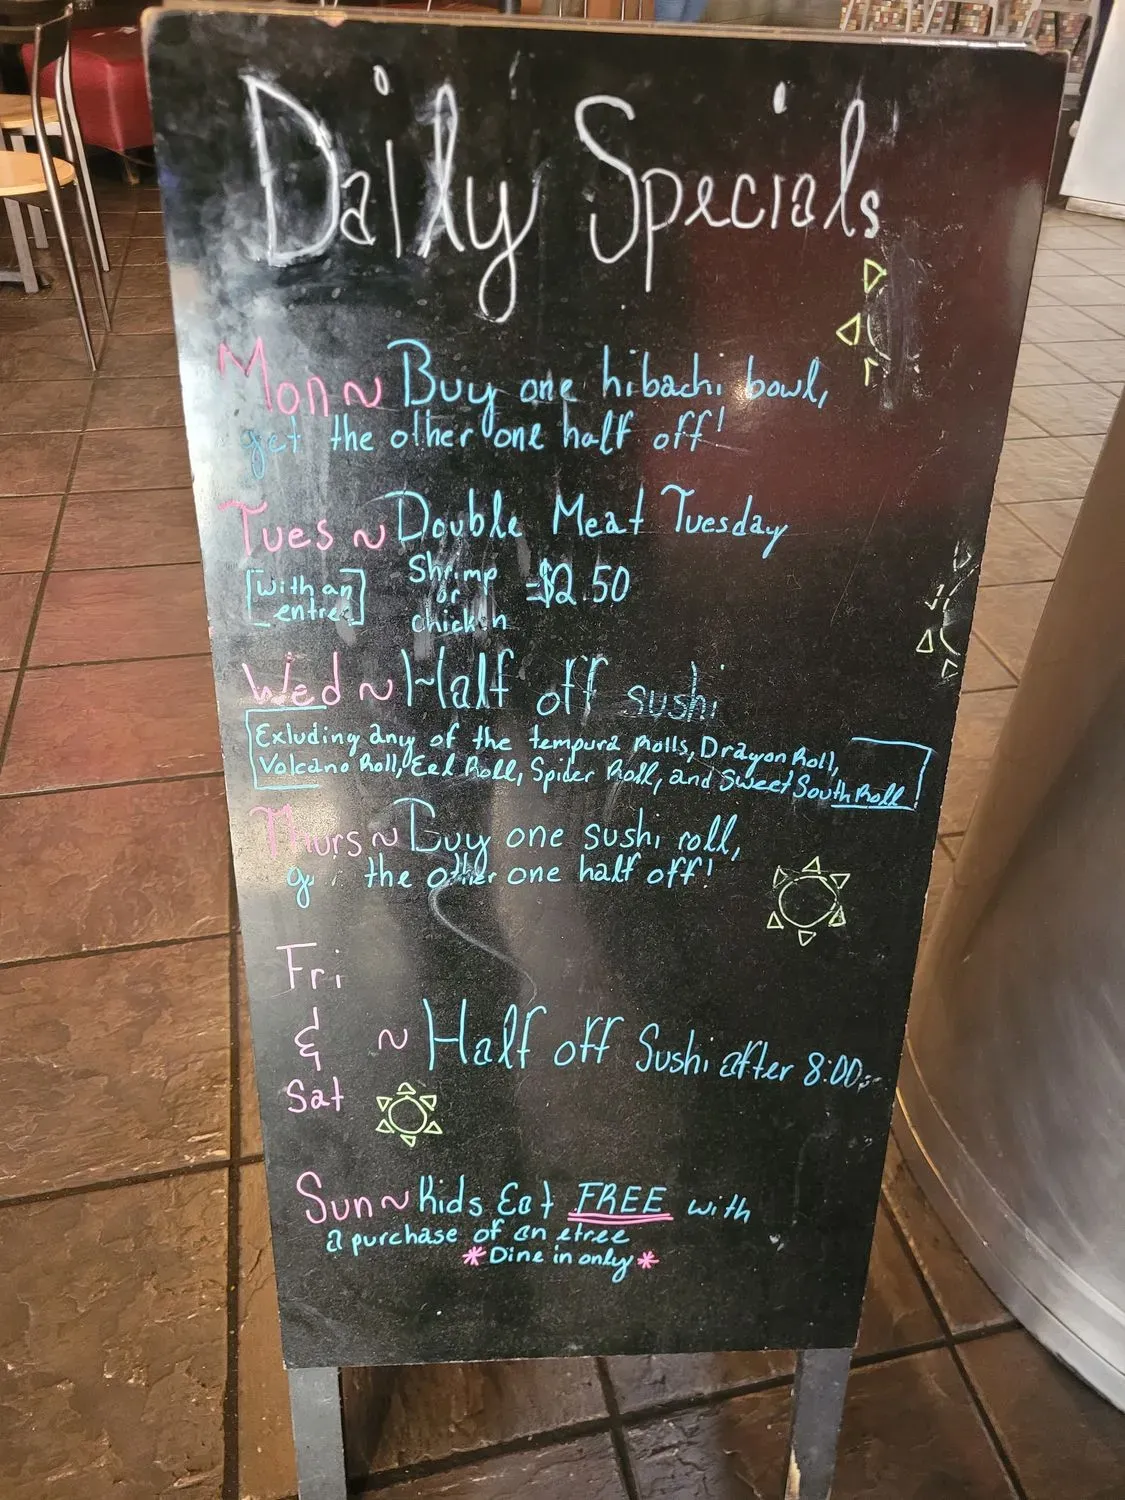 Daily Specials
Mon ~ Buy one hibachi bowl,
get the other one half off!
Tues ~ Double Meat Tuesday
[with an entree] Shrimp or chicken = $2.50
Wed ~ Half off sushi
[Exluding any of the tempura Rolls, Dragon Roll,
Volcano Roll, Eel Roll, Spider Roll, and Sweet South Roll]
Thurs ~ Buy one sushi roll,
the other one half off!
Fri
& ~ Half off Sushi after 8:00
Sat
Sun ~ Kids Eat FREE with
a purchase of an etree
*Dine in only*